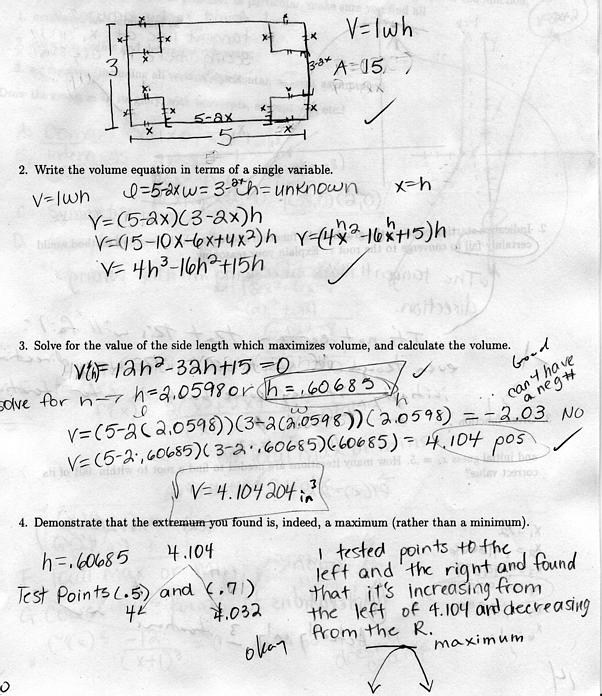 V=lwh
3
3-2x
A=15
5-2x
5
2. Write the volume equation in terms of a single variable.
V=lwh l=5-2x w=3-2x h=unknown x=h
V=(5-2x)(3-2x)h
V=(15-10x-6x+4x²)h V=(4x²-16x+15)h
V=4h³-16h²+15h
3. Solve for the value of the side length which maximizes volume, and calculate the volume.
V'(h)=12h²-32h+15=0
Good
can't have a neg #
solve for h→ h=2.0598 or h=.60685
V=(5-2(2.0598))(3-2(2.0598))(2.0598) = -2.03 NO
V=(5-2·.60685)(3-2·.60685)(.60685) = 4.104 pos
V=4.104204 in³
4. Demonstrate that the extremum you found is, indeed, a maximum (rather than a minimum).
h=.60685 4.104
Test Points (.5) and (.71)
4 4.032
okay
I tested points to the
left and the right and found
that it's increasing from
the left of 4.104 and decreasing
from the R.
maximum